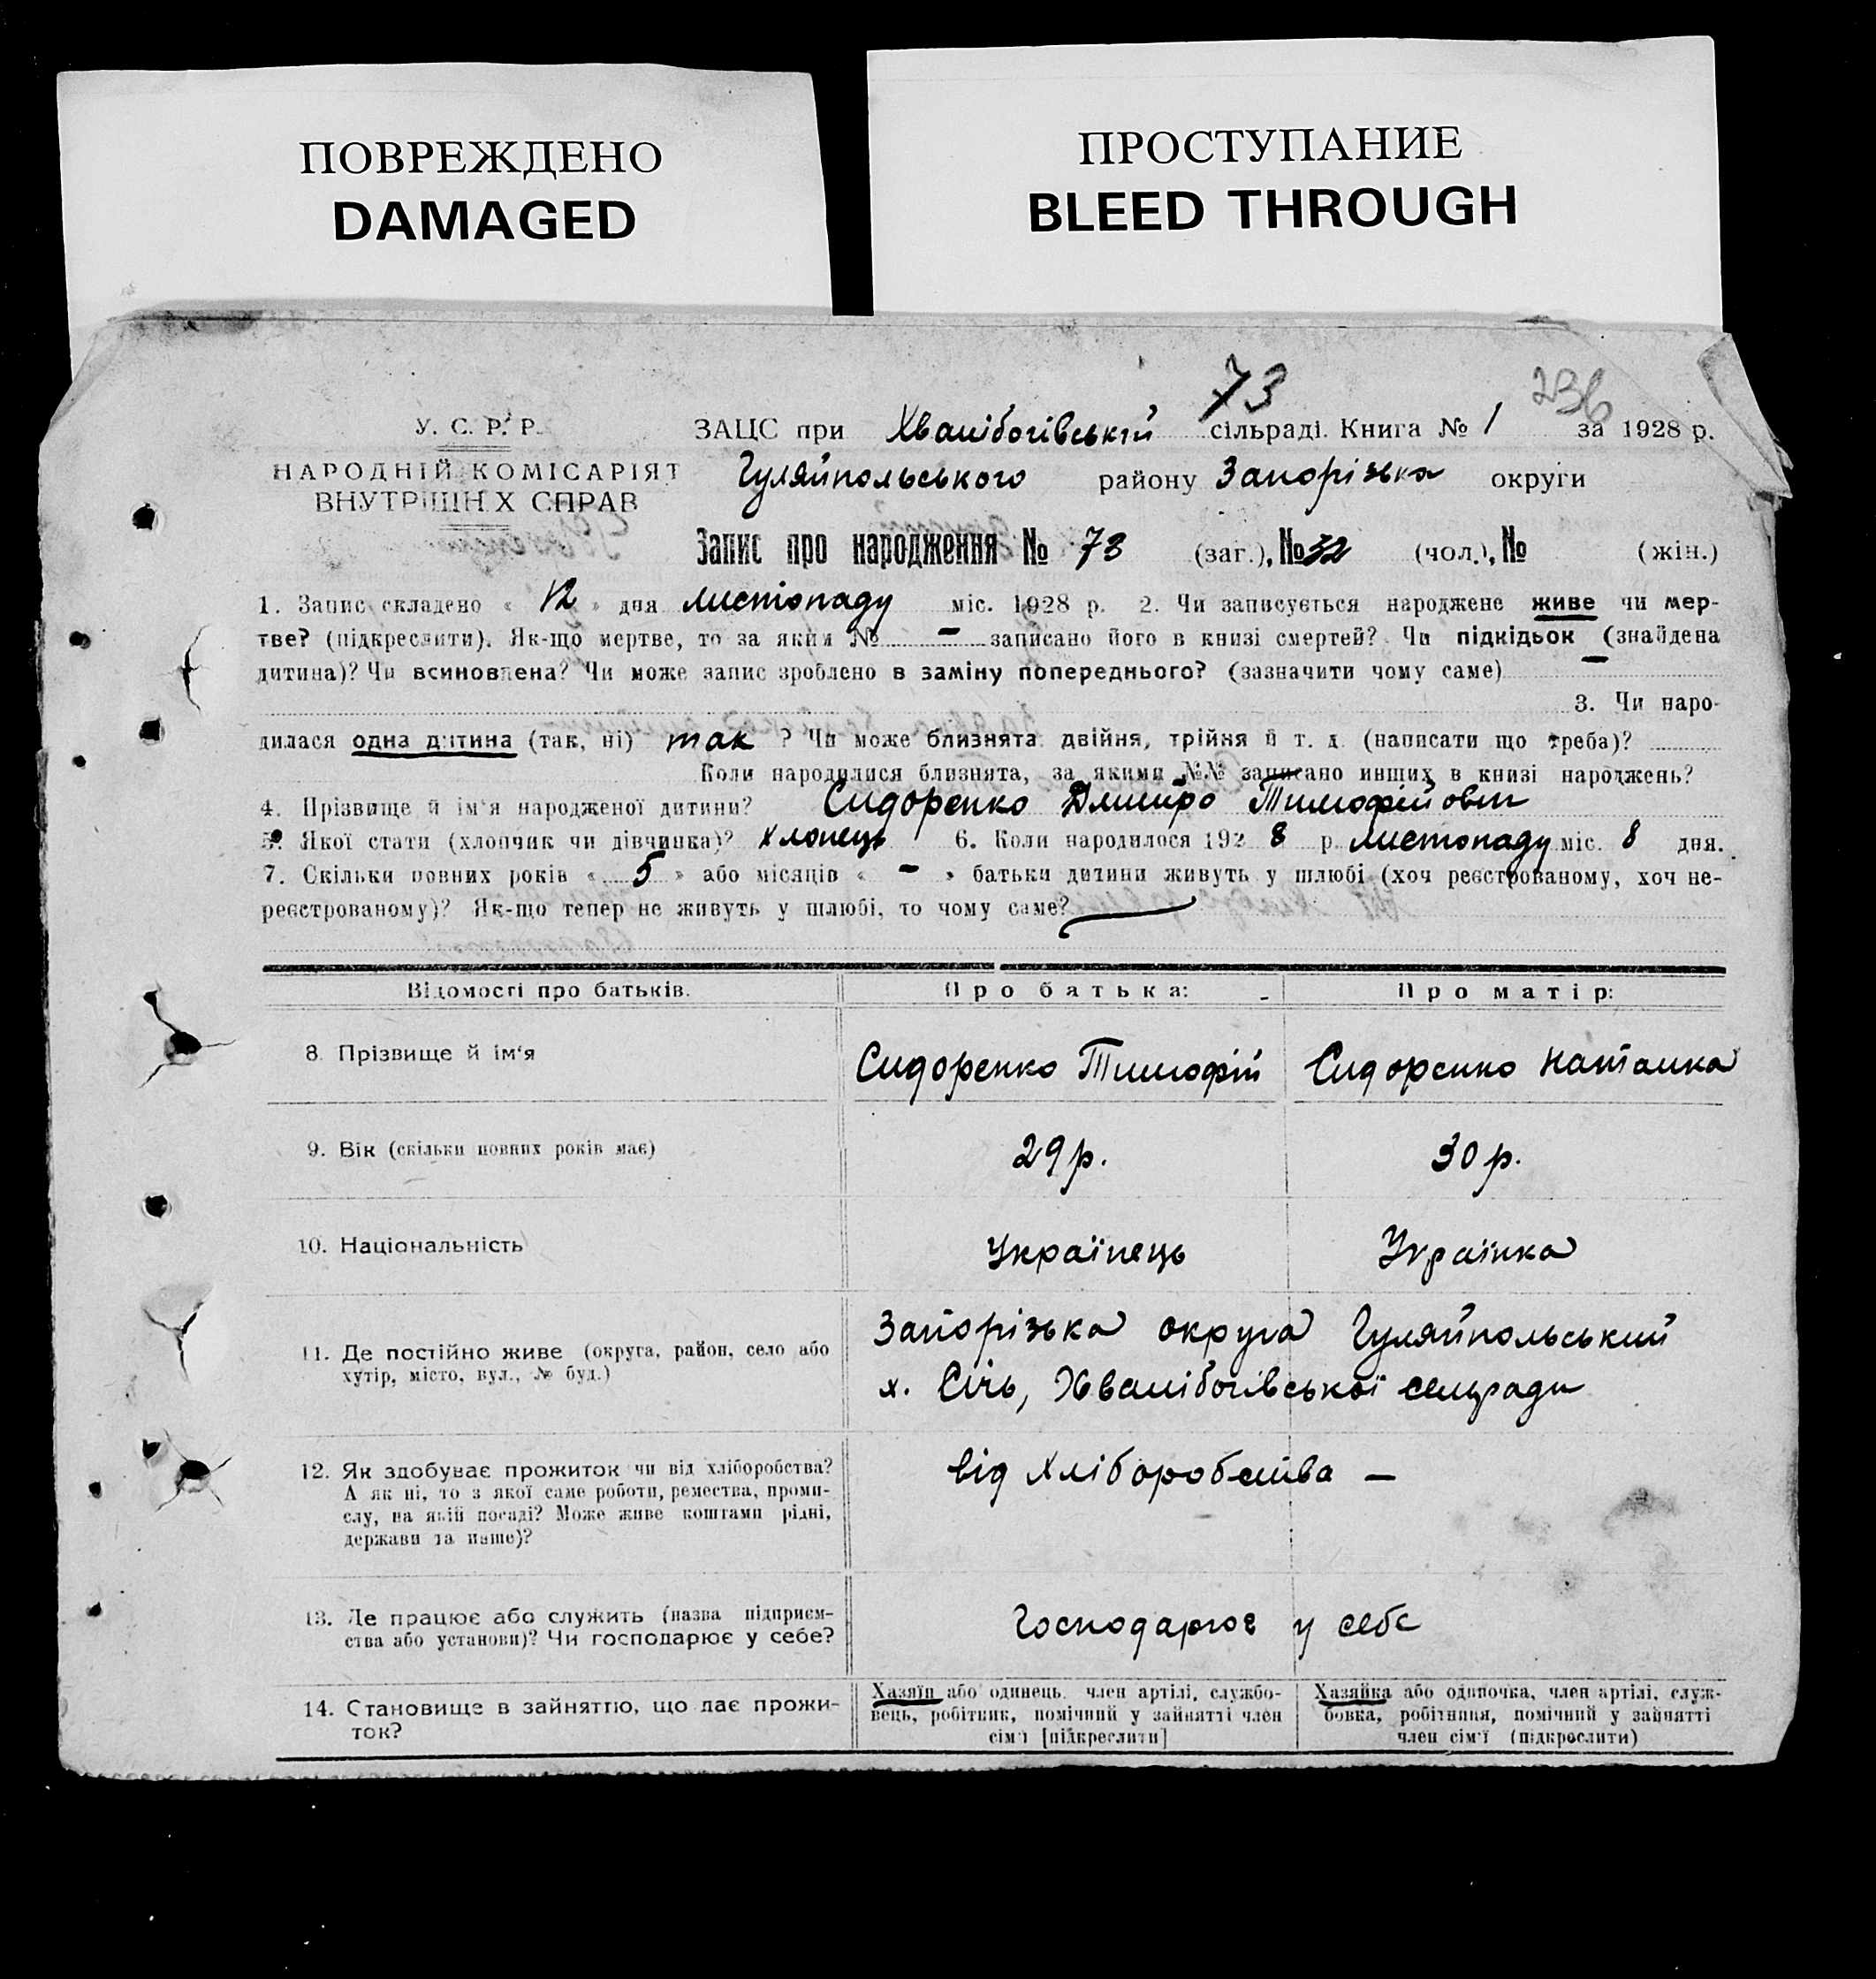 ПОВРЕЖДЕНО
DAMAGED
ПРОСТУПАНИЕ
BLEED THROUGH
73
236
У. С. Р. Р.
НАРОДНІЙ КОМІСАРІЯТ
ВНУТРІШНІХ СПРАВ
ЗАЦС при Хванібогівській сільраді. Книга № 1 за 1928 р.
Гуляйпольського району Запорізька округи
Запис про народження № 73 (заг.), № 32 (чол.), № (жін.)
1. Запис складено « 12 » дня листіопаду міс. 1928 р. 2. Чи записується народжене живе чи мер-
тве? (підкреслити). Як-що мертве, то за яким № - записано його в книзі смертей? Чи підкідьок (знайдена
дитина)? Чи всиновлена? Чи може запис зроблено в заміну попереднього? (зазначити чому саме) -
3. Чи наро-
дилася одна дитина (так, ні) так ? Чи може близнята двійня, трійня й т. д. (написати що треба)?
Коли народилися близнята, за якими №№ записано инших в книзі народжень?
4. Прізвище й ім'я народженої дитини? Сидоренко Дмитро Тимофійович
5. Якої стати (хлопчик чи дівчинка)? хлопець 6. Коли народилося 192 8 р. листопаду міс. 8 дня.
7. Скільки повних років « 5 » або місяців « - » батьки дитини живуть у шлюбі (хоч реєстрованому, хоч не-
реєстрованому)? Як-що тепер не живуть у шлюбі, то чому саме?
Відомості про батьків. Про батька: Про матір:
8. Прізвище й ім'я Сидоренко Тимофій Сидоренко Наталка
9. Вік (скільки повних років має) 29 р. 30 р.
10. Національність Українець Українка
11. Де постійно живе (округа, район, село або
хутір, місто, вул., № буд.)
Запорізька округа Гуляйпольський
х. Січь, Хванібогівської сельради
12. Як здобуває прожиток чи від хліборобства?
А як ні, то з якої саме роботи, ремества, проми-
слу, на якій посаді? Може живе коштами рідні,
держави та инше)?
від Хліборобства —
13. Де працює або служить (назва підприєм-
ства або установи)? Чи господарює у себе?
Господарює у себе
14. Становище в зайняттю, що дає прожи-
ток?
Хазяїн або одинець, член артілі, службо-
вець, робітник, помічний у зайнятті член
сім'ї [підкреслити]
Хазяйка або одиночка, член артілі, служ-
бовка, робітниця, помічний у зайнятті
член сім'ї (підкреслити)